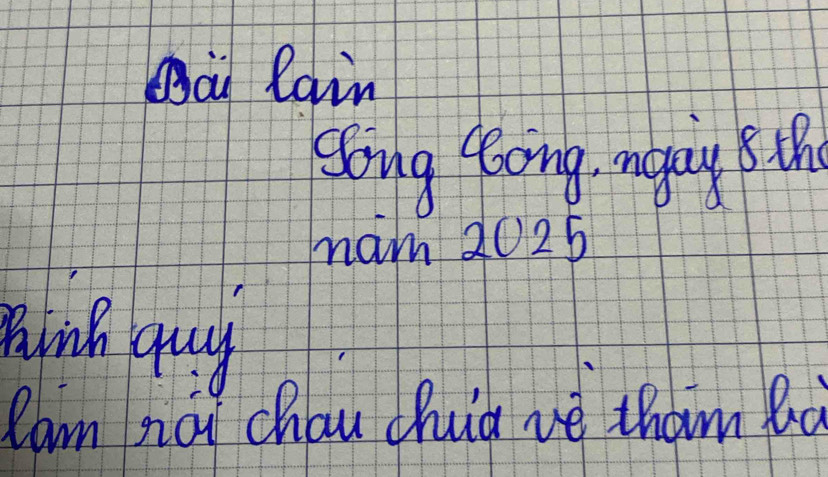 Bài làm
Sông Công, ngày 8 th
năm 2025
kính quý
lắm rồi cháu chưa về thăm bà